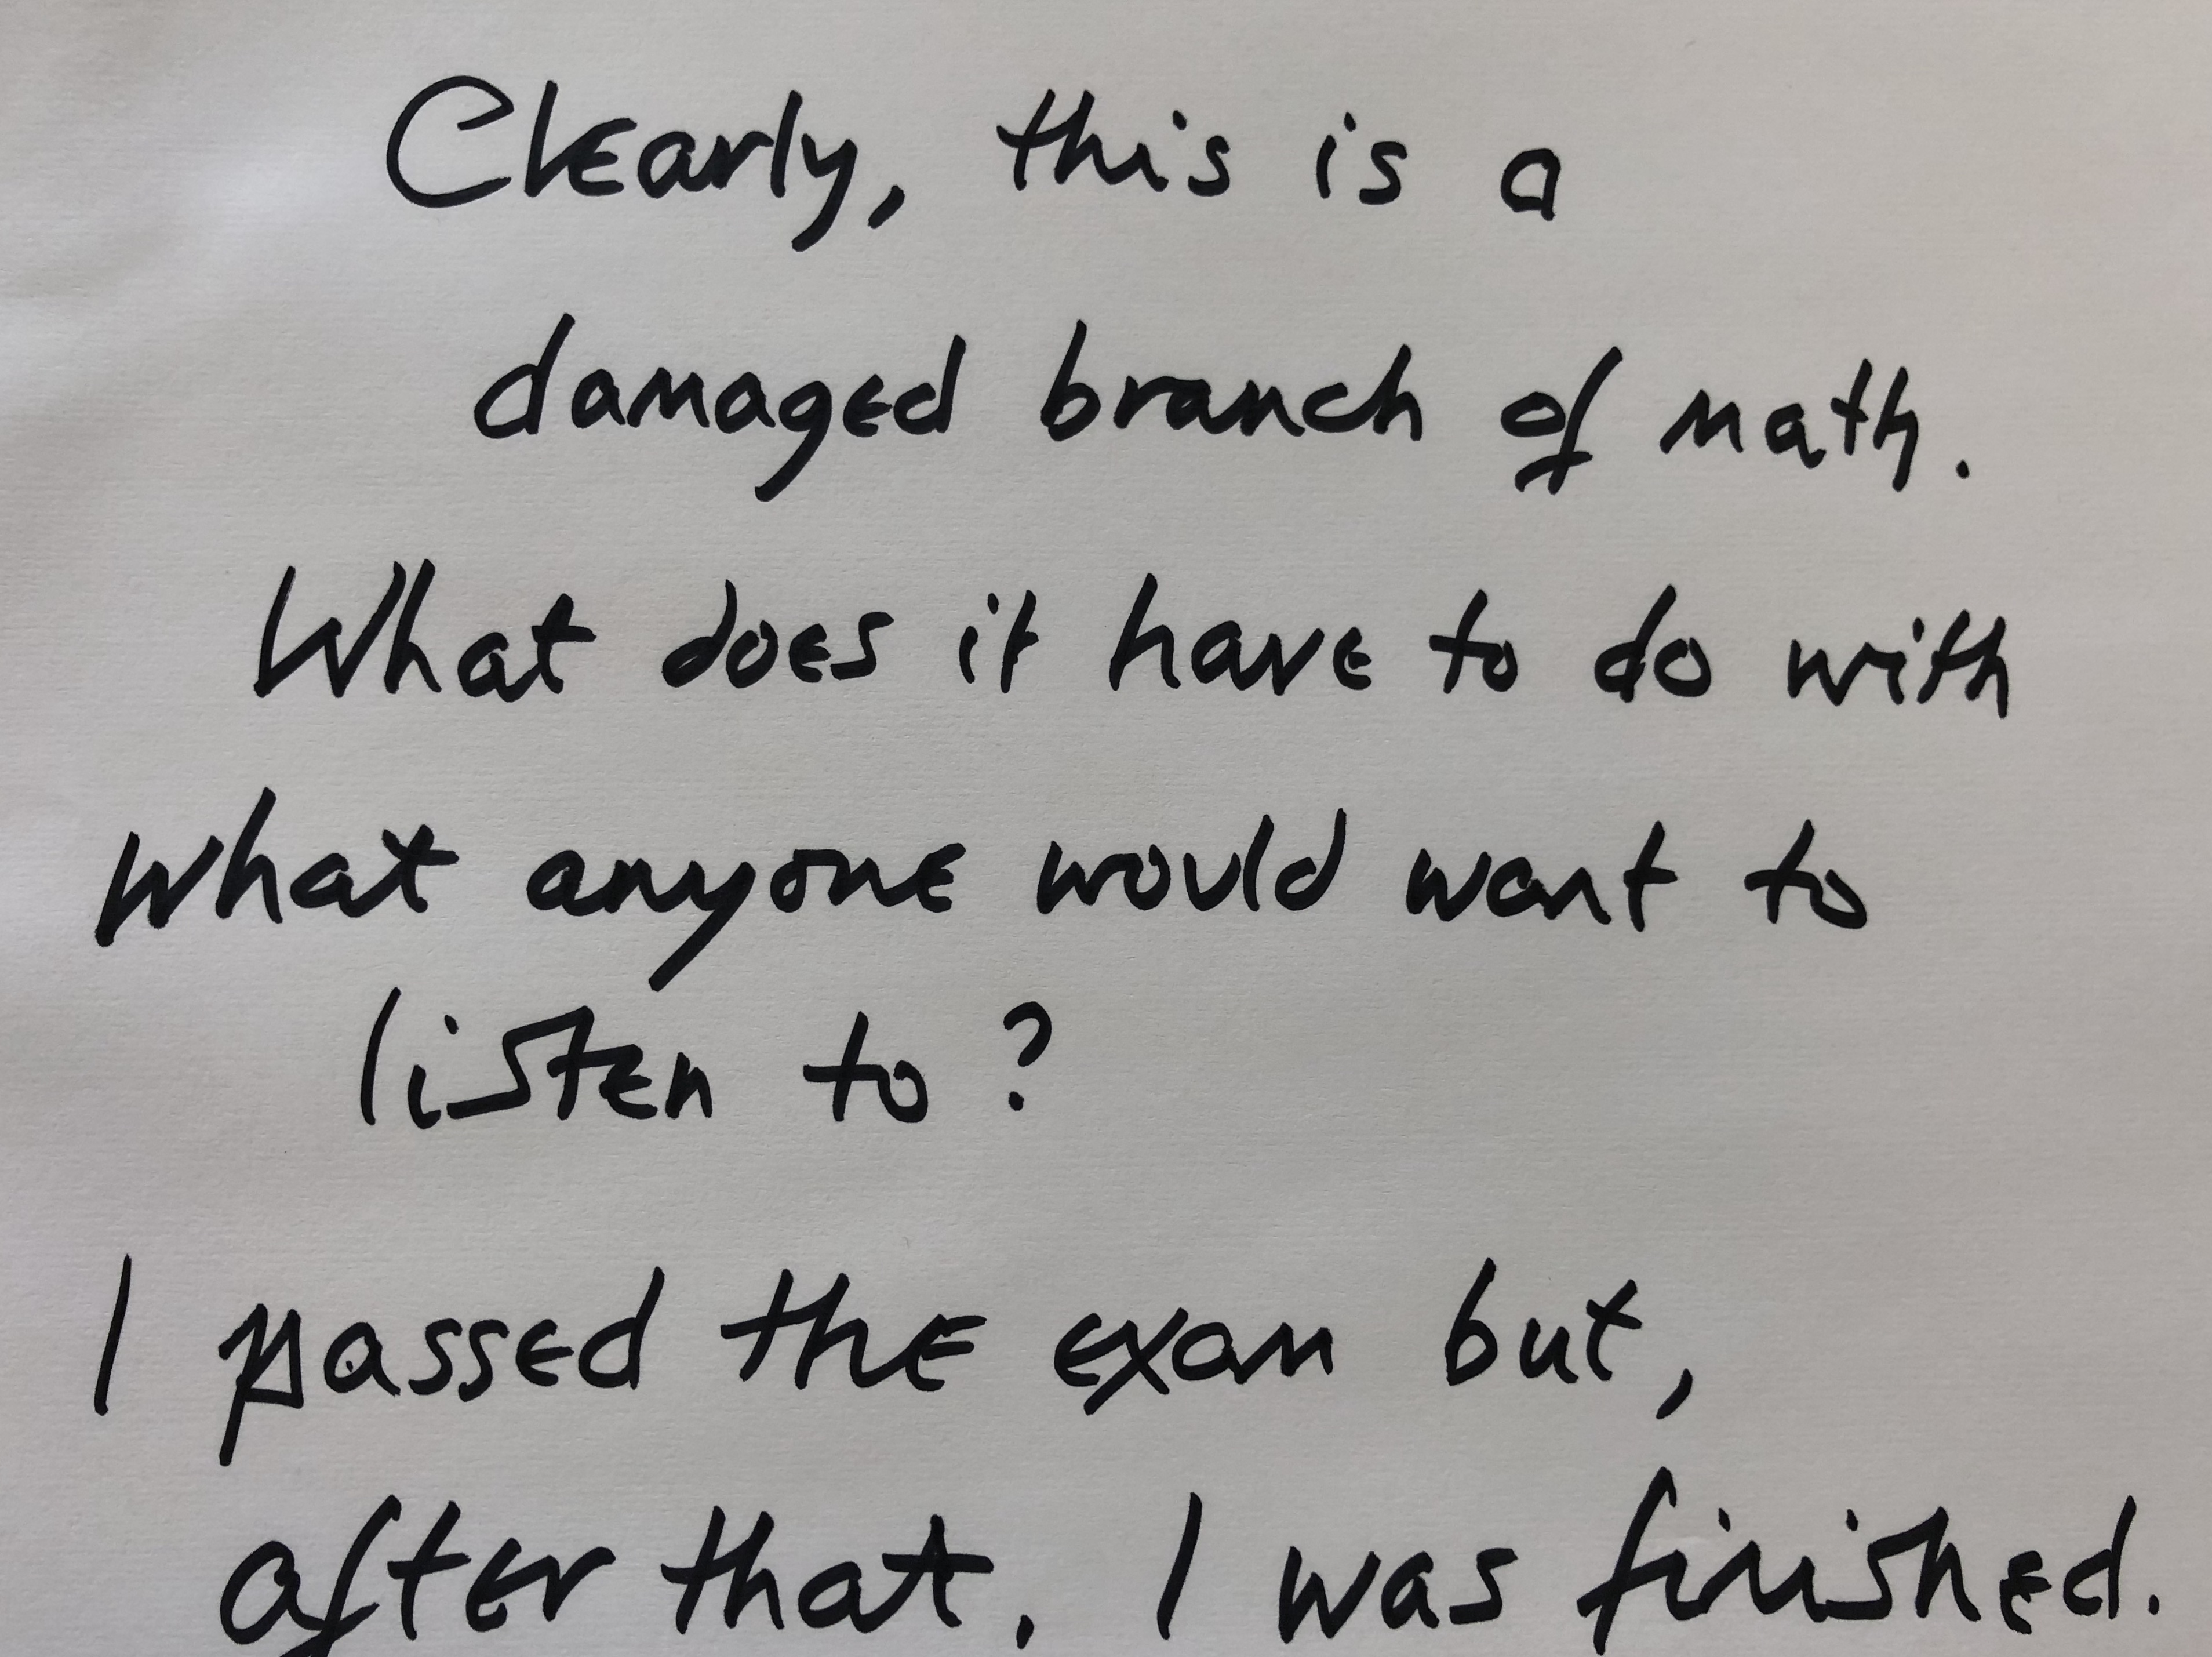 Clearly, this is a
damaged branch of math.
What does it have to do with
what anyone would want to
listen to?
I passed the exam but,
after that, I was finished.